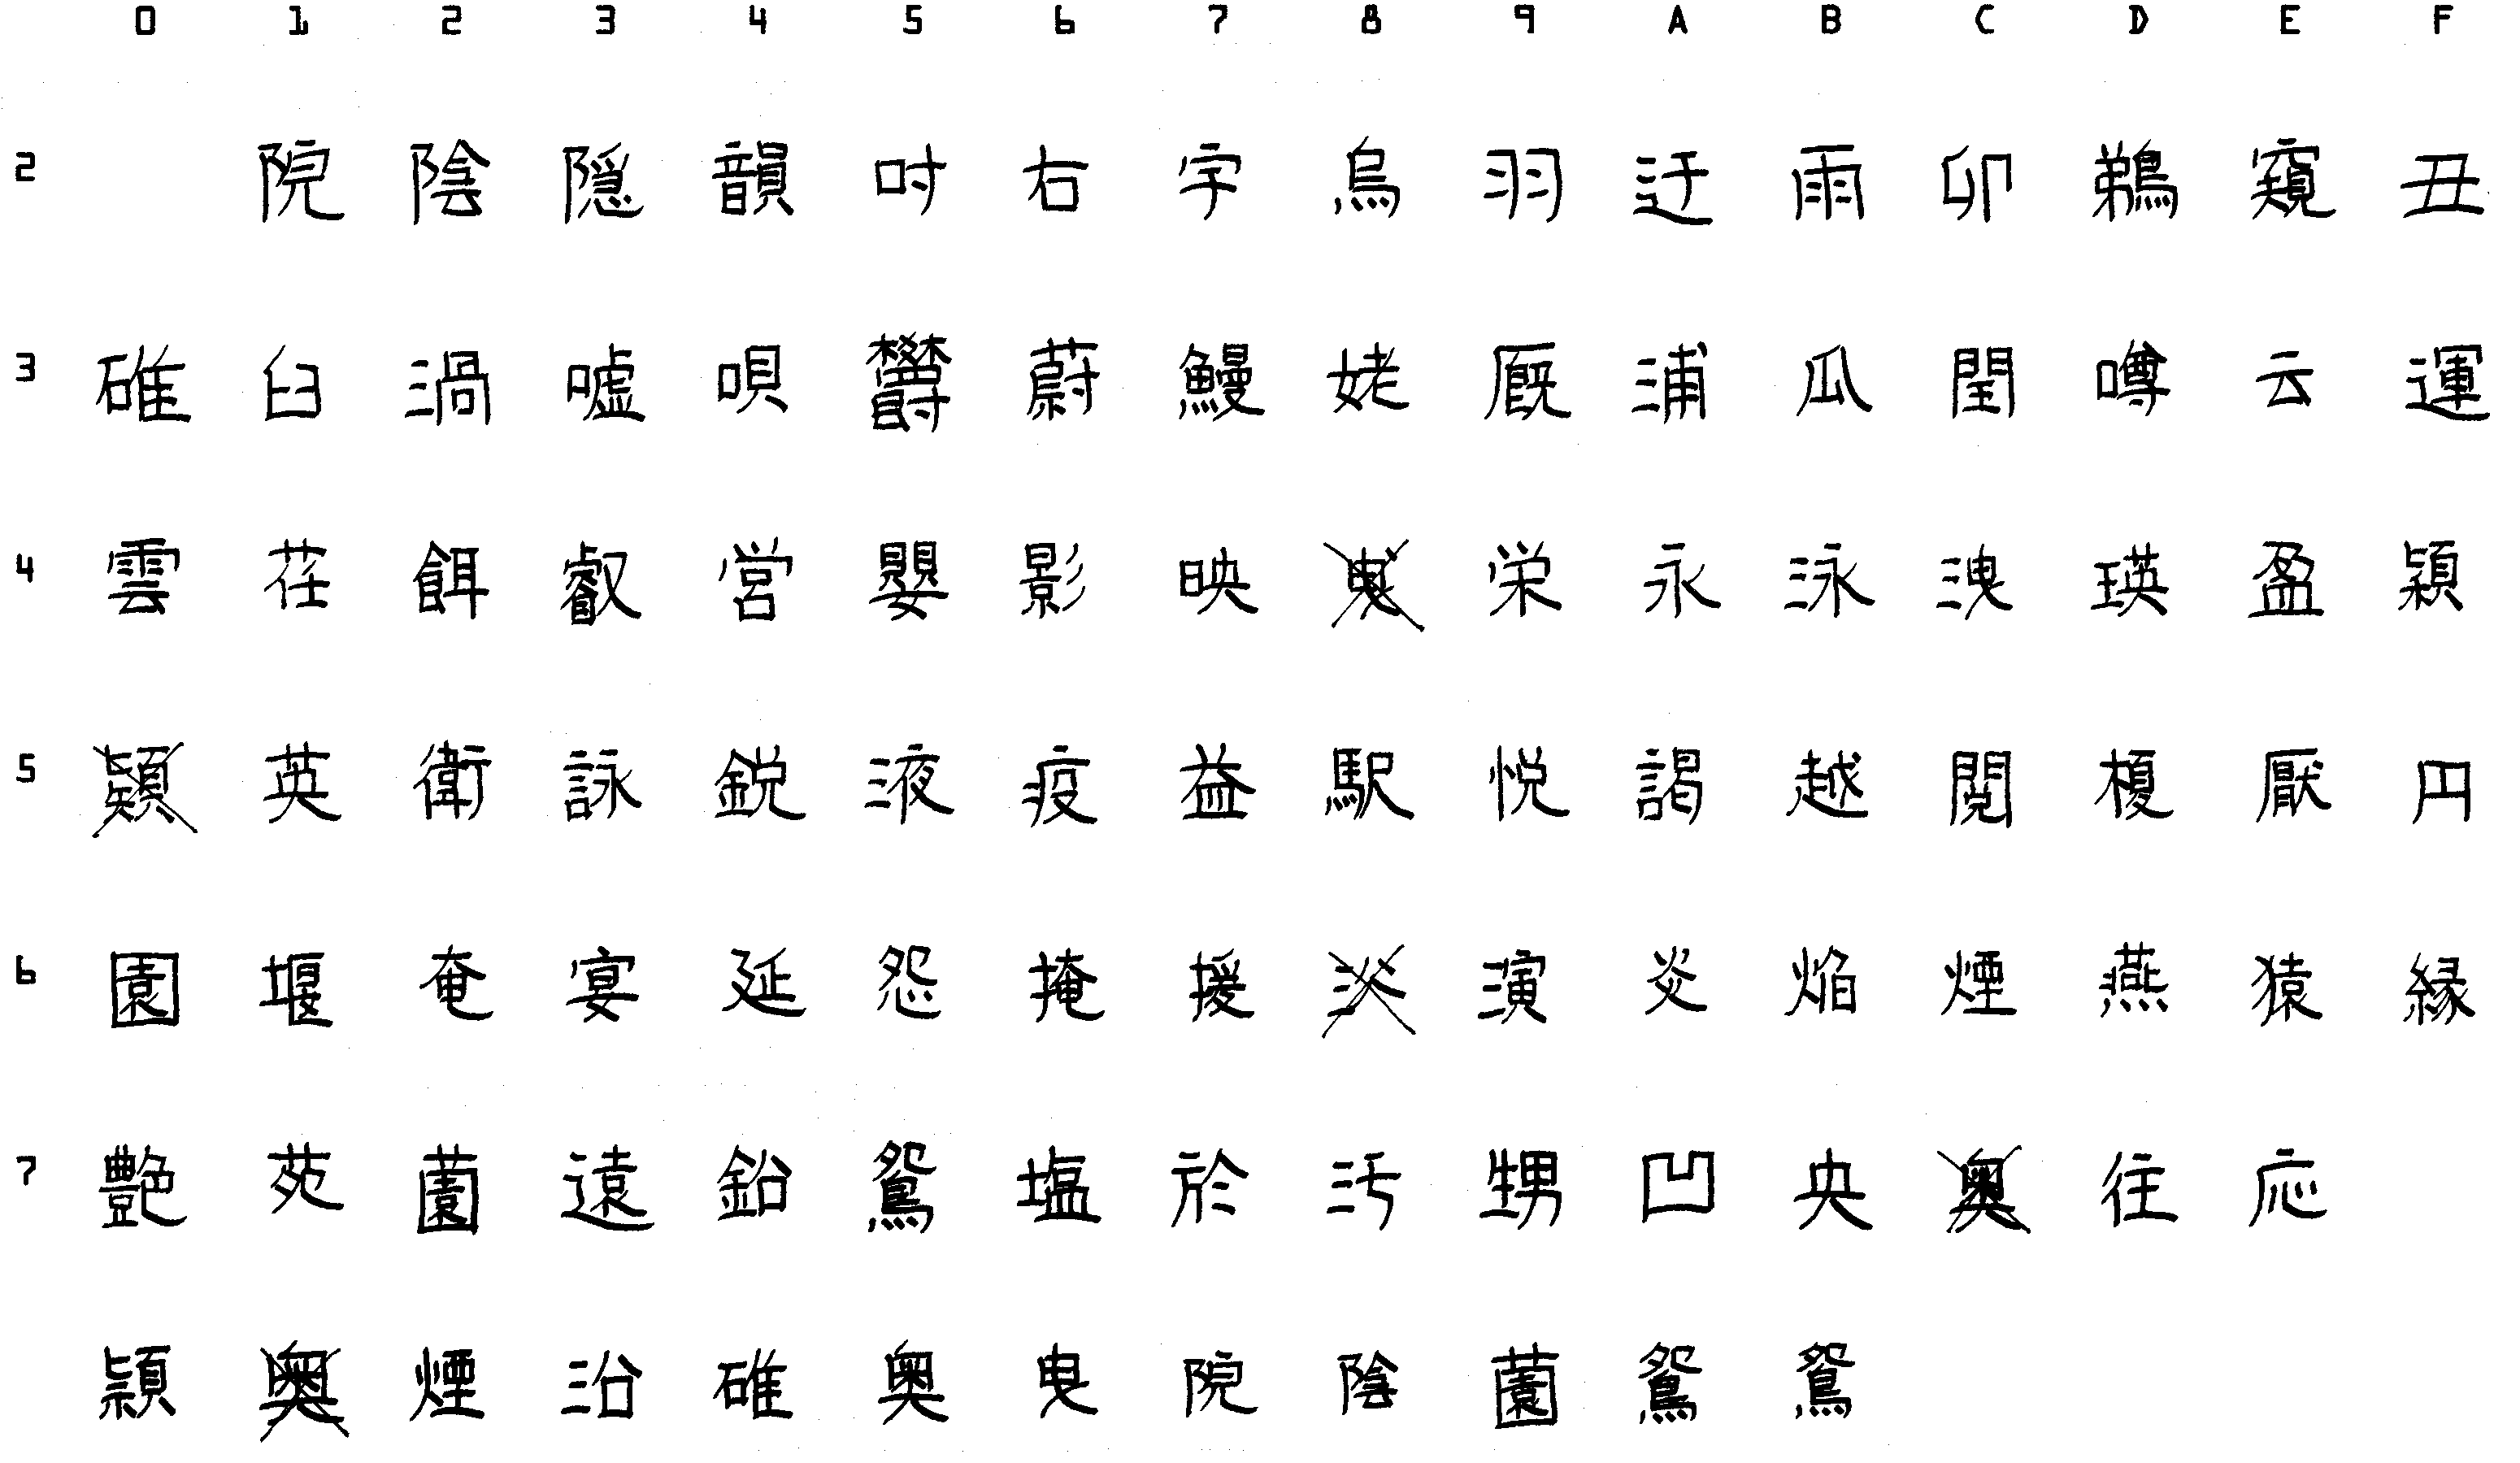 0 1 2 3 4 5 6 7 8 9 A B C D E F
2 院 陰 隠 韻 吋 右 宇 烏 羽 迂 雨 卯 鵜 窺 丑
3 碓 臼 渦 嘘 唄 欝 蔚 鰻 姥 厩 浦 瓜 閏 噂 云 運
4 雲 荏 餌 叡 営 嬰 影 映 曳 栄 永 泳 洩 瑛 盈 穎
5 頴 英 衛 詠 鋭 液 疫 益 駅 悦 謁 越 閲 榎 厭 円
6 園 堰 奄 宴 延 怨 掩 援 沿 演 炎 焔 煙 燕 猿 縁
7 艶 苑 薗 遠 鉛 鴛 塩 於 汚 甥 凹 央 奥 往 応
頴 奥 煙 沿 碓 奥 曳 院 陰 薗 鴛 鴛